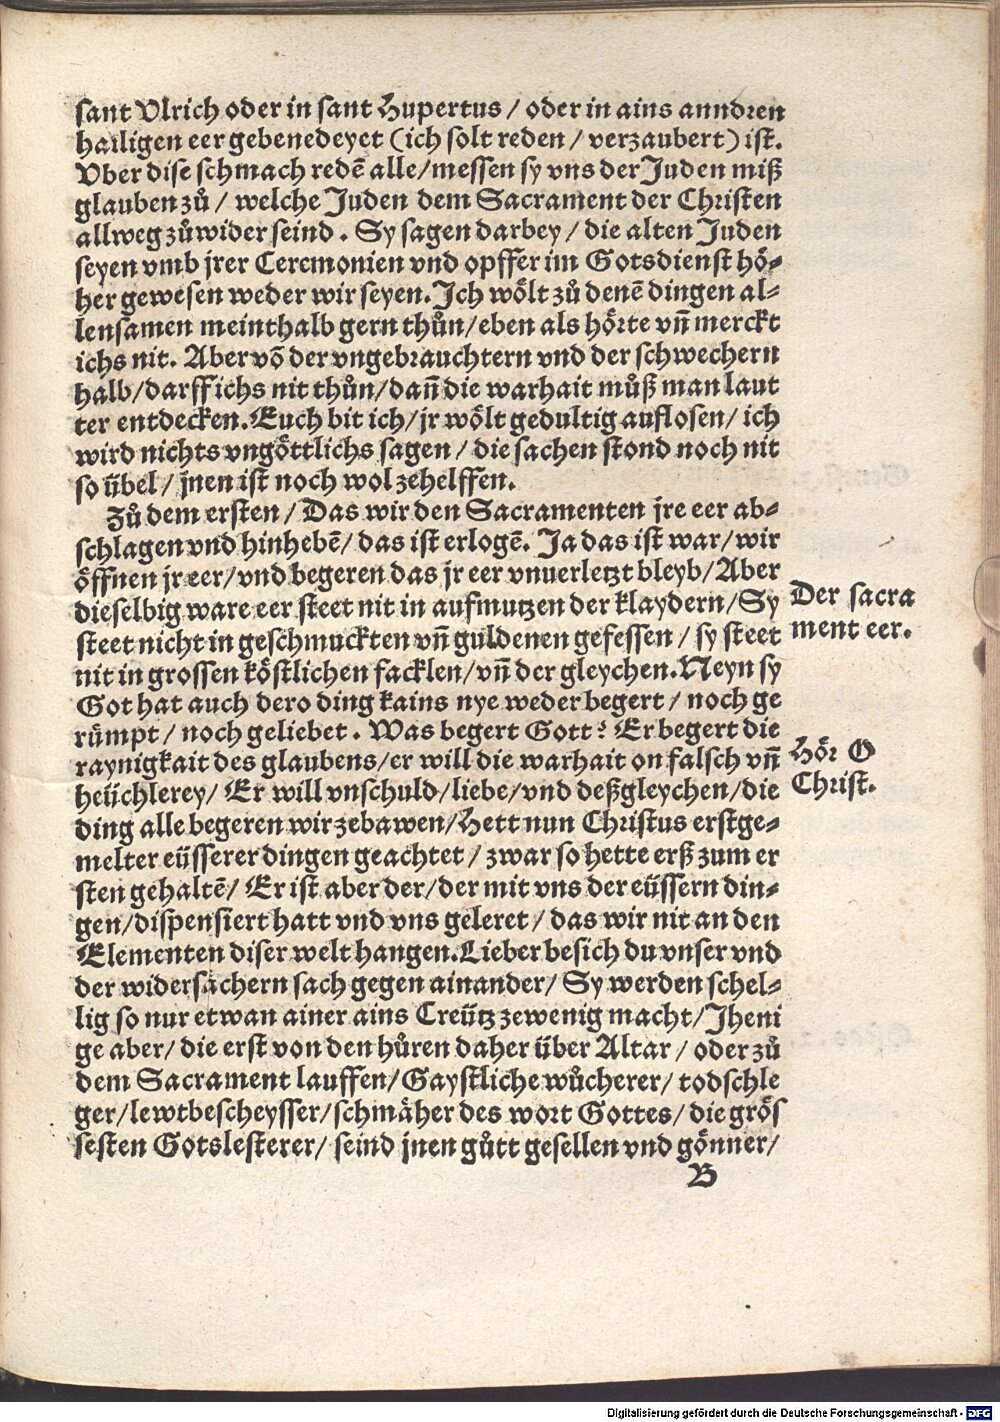 sant Vlrich oder in sant Hupertus / oder in ains anndren
hailigen eer gebenedeyet (ich solt reden / verzaubert) ist.
Vber dise schmach redē alle/messen sy vns der Juden miß
glauben zů / welche Juden dem Sacrament der Christen
allweg zůwider seind . Sy sagen darbey / die alten Juden
seyen vmb jrer Ceremonien vnd opffer im Gotsdienst hö⸗
her gewesen weder wir seyen. Ich wölt zů denē dingen al⸗
lensamen meinthalb gern thůn/eben als hörte vñ merckt
ichs nit. Aber vō der vngebrauchtern vnd der schwechern
halb/darff ichs nit thůn/dañ die warhait můß man laut
ter entdecken. Euch bit ich/jr wölt gedultig auflosen/ ich
wird nichts vngöttlichs sagen / die sachen stond noch nit
so übel / jnen ist noch wol zehelffen.
Zů dem ersten / Das wir den Sacramenten jre eer ab⸗
schlagen vnd hinhebē/ das ist erlogē. Ja das ist war/wir
öffnen jr eer/vnd begeren das jr eer vnuerletzt bleyb/Aber
dieselbig ware eer steet nit in aufmutzen der klaydern/Sy
steet nicht in geschmuckten vñ guldenen gefessen / sy steet
nit in grossen köstlichen facklen/vñ der gleychen. Neyn sy
Got hat auch dero ding kains nye weder begert / noch ge
rümpt / noch geliebet . Was begert Gott? Er begert die
raynigkait des glaubens/er will die warhait on falsch vñ
heüchlerey/ Er will vnschuld/liebe/vnd deßgleychen/die
ding alle begeren wir zebawen/Hett nun Christus erstge⸗
melter eüsserer dingen geachtet / zwar so hette erß zum er
sten gehaltē/ Er ist aber der/der mit vns der eüssern din⸗
gen/dispensiert hatt vnd vns geleret / das wir nit an den
Elementen diser welt hangen. Lieber besich du vnser vnd
der widersächern sach gegen ainander/ Sy werden schel⸗
lig so nur etwan ainer ains Creütz zewenig macht/Jheni
ge aber/ die erst von den hůren daher über Altar / oder zů
dem Sacrament lauffen/Gaystliche wůcherer/ todschle
ger/lewtbescheysser/schmäher des wort Gottes/ die grös
sesten Gotslesterer/ seind jnen gůtt gesellen vnd gönner/
B
Der sacra
ment eer.
Hör O
Christ.
Digitalisierung gefördert durch die Deutsche Forschungsgemeinschaft - DFG